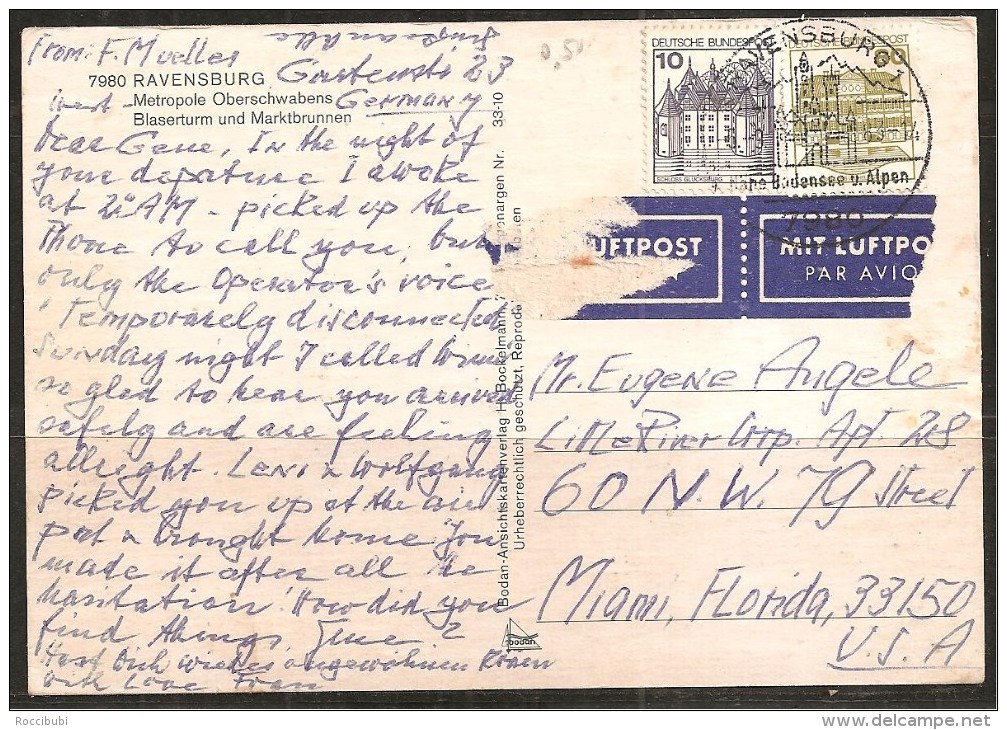 From: F. Mueller
Gartenstr 23
7980 RAVENSBURG
West - GERMANY
Metropole Oberschwabens
Blaserturm und Marktbrunnen
Dear Gene, In the night of
your departure I awoke
at 2 AM - picked up the
Phone to call you, but
only the Operator's voice
Temporarely disconnected
Sunday night I called
so gled to hear you arrived
safely and are feeling
allright. Leni & Wolfgang
picked you up at the air
port & brought home. You
made it after all the
hasitation! How did you
find things, Gene?
Hast Dich wieder angewöhnen
With Love
33-10
Bodan-Ansichtskartenverlag H. Bockelmann, 7 enargen Nr.
Urheberrechtlich geschützt, Reprod
bodan
DEUTSCHE BUNDESPO
10
SCHLOSS GLÜCKSBURG
POST
RAVENSBURG
Nähe Bodensee u. Alpen
7980
LUFTPOST
MIT LUFTPO
PAR AVIO
Mr. EUGENE Angele
Little River Corp. Apt. 218
60 N.W. 79 Street
Miami, Florida, 33150
U.S.A
Roccibubi
www.delcampe.net